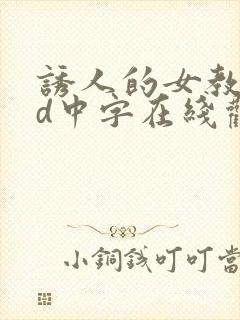 誘人的女教
d中字在綫
小銅錢叮叮當